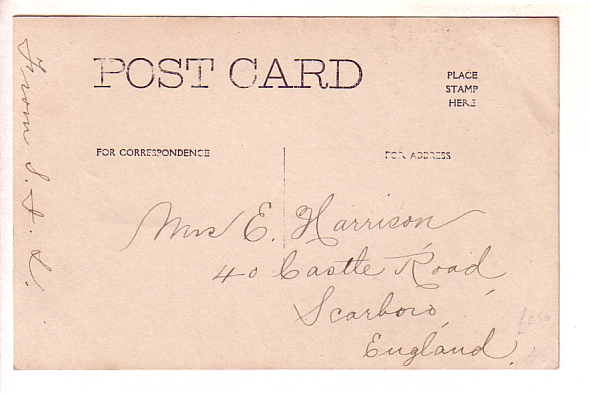 POST CARD
PLACE
STAMP
HERE
FOR CORRESPONDENCE
FOR ADDRESS
From S. H. L.
Mrs E. Harrison
40 Castle Road
Scarboro
England